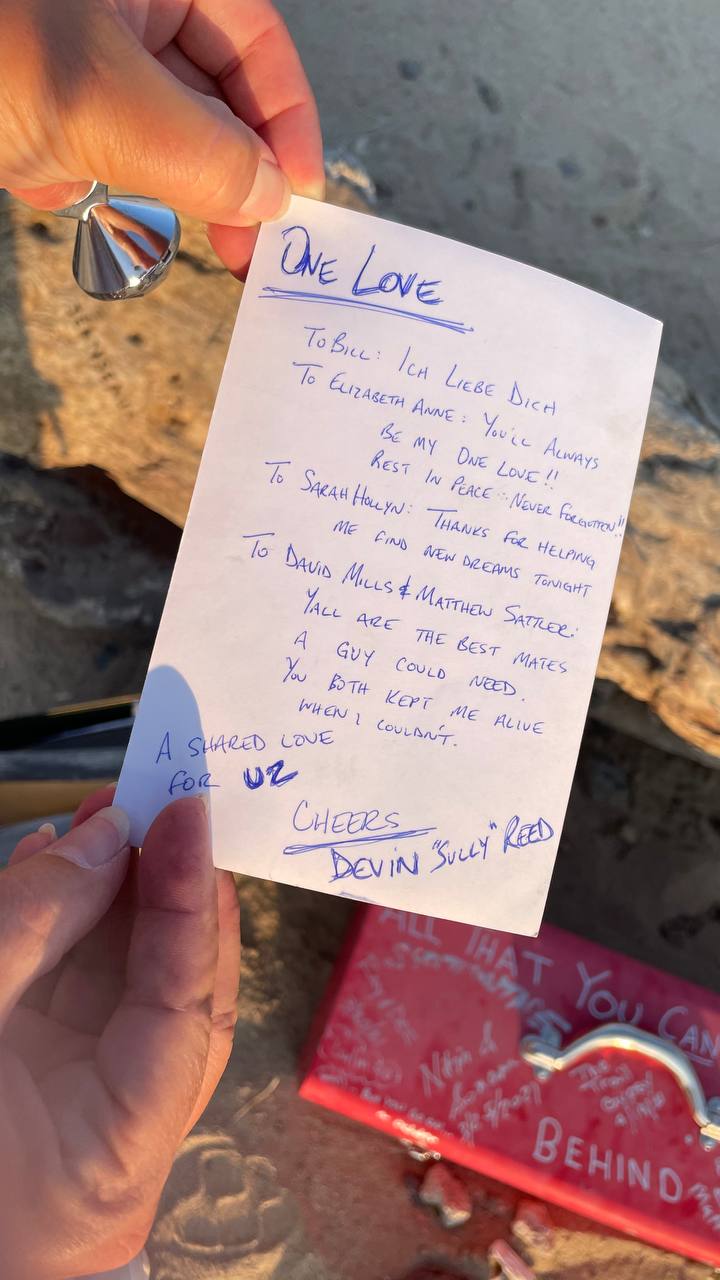 ONE LOVE
TO BILL: ICH LIEBE DICH
TO ELIZABETH ANNE: YOU'LL ALWAYS
BE MY ONE LOVE!!
REST IN PEACE - NEVER FORGOTTEN!!
TO SARAH HOLLYN: THANKS FOR HELPING
ME FIND NEW DREAMS TONIGHT
TO DAVID MILLS & MATTHEW SATTLER:
YALL ARE THE BEST MATES
A GUY COULD NEED.
YOU BOTH KEPT ME ALIVE
WHEN I COULDN'T.
A SHARED LOVE
FOR U2
CHEERS
DEVIN "SULLY" REED
ALL THAT YOU CAN
BEHIND